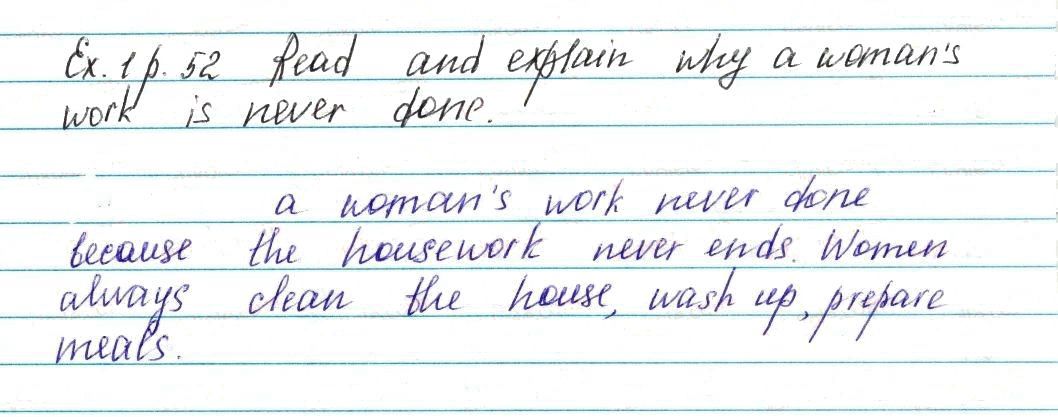 Ex. 1 p. 52 Read and explain why a woman's
work is never done.
a woman's work never done
because the housework never ends. Women
always clean the house, wash up, prepare
meals.